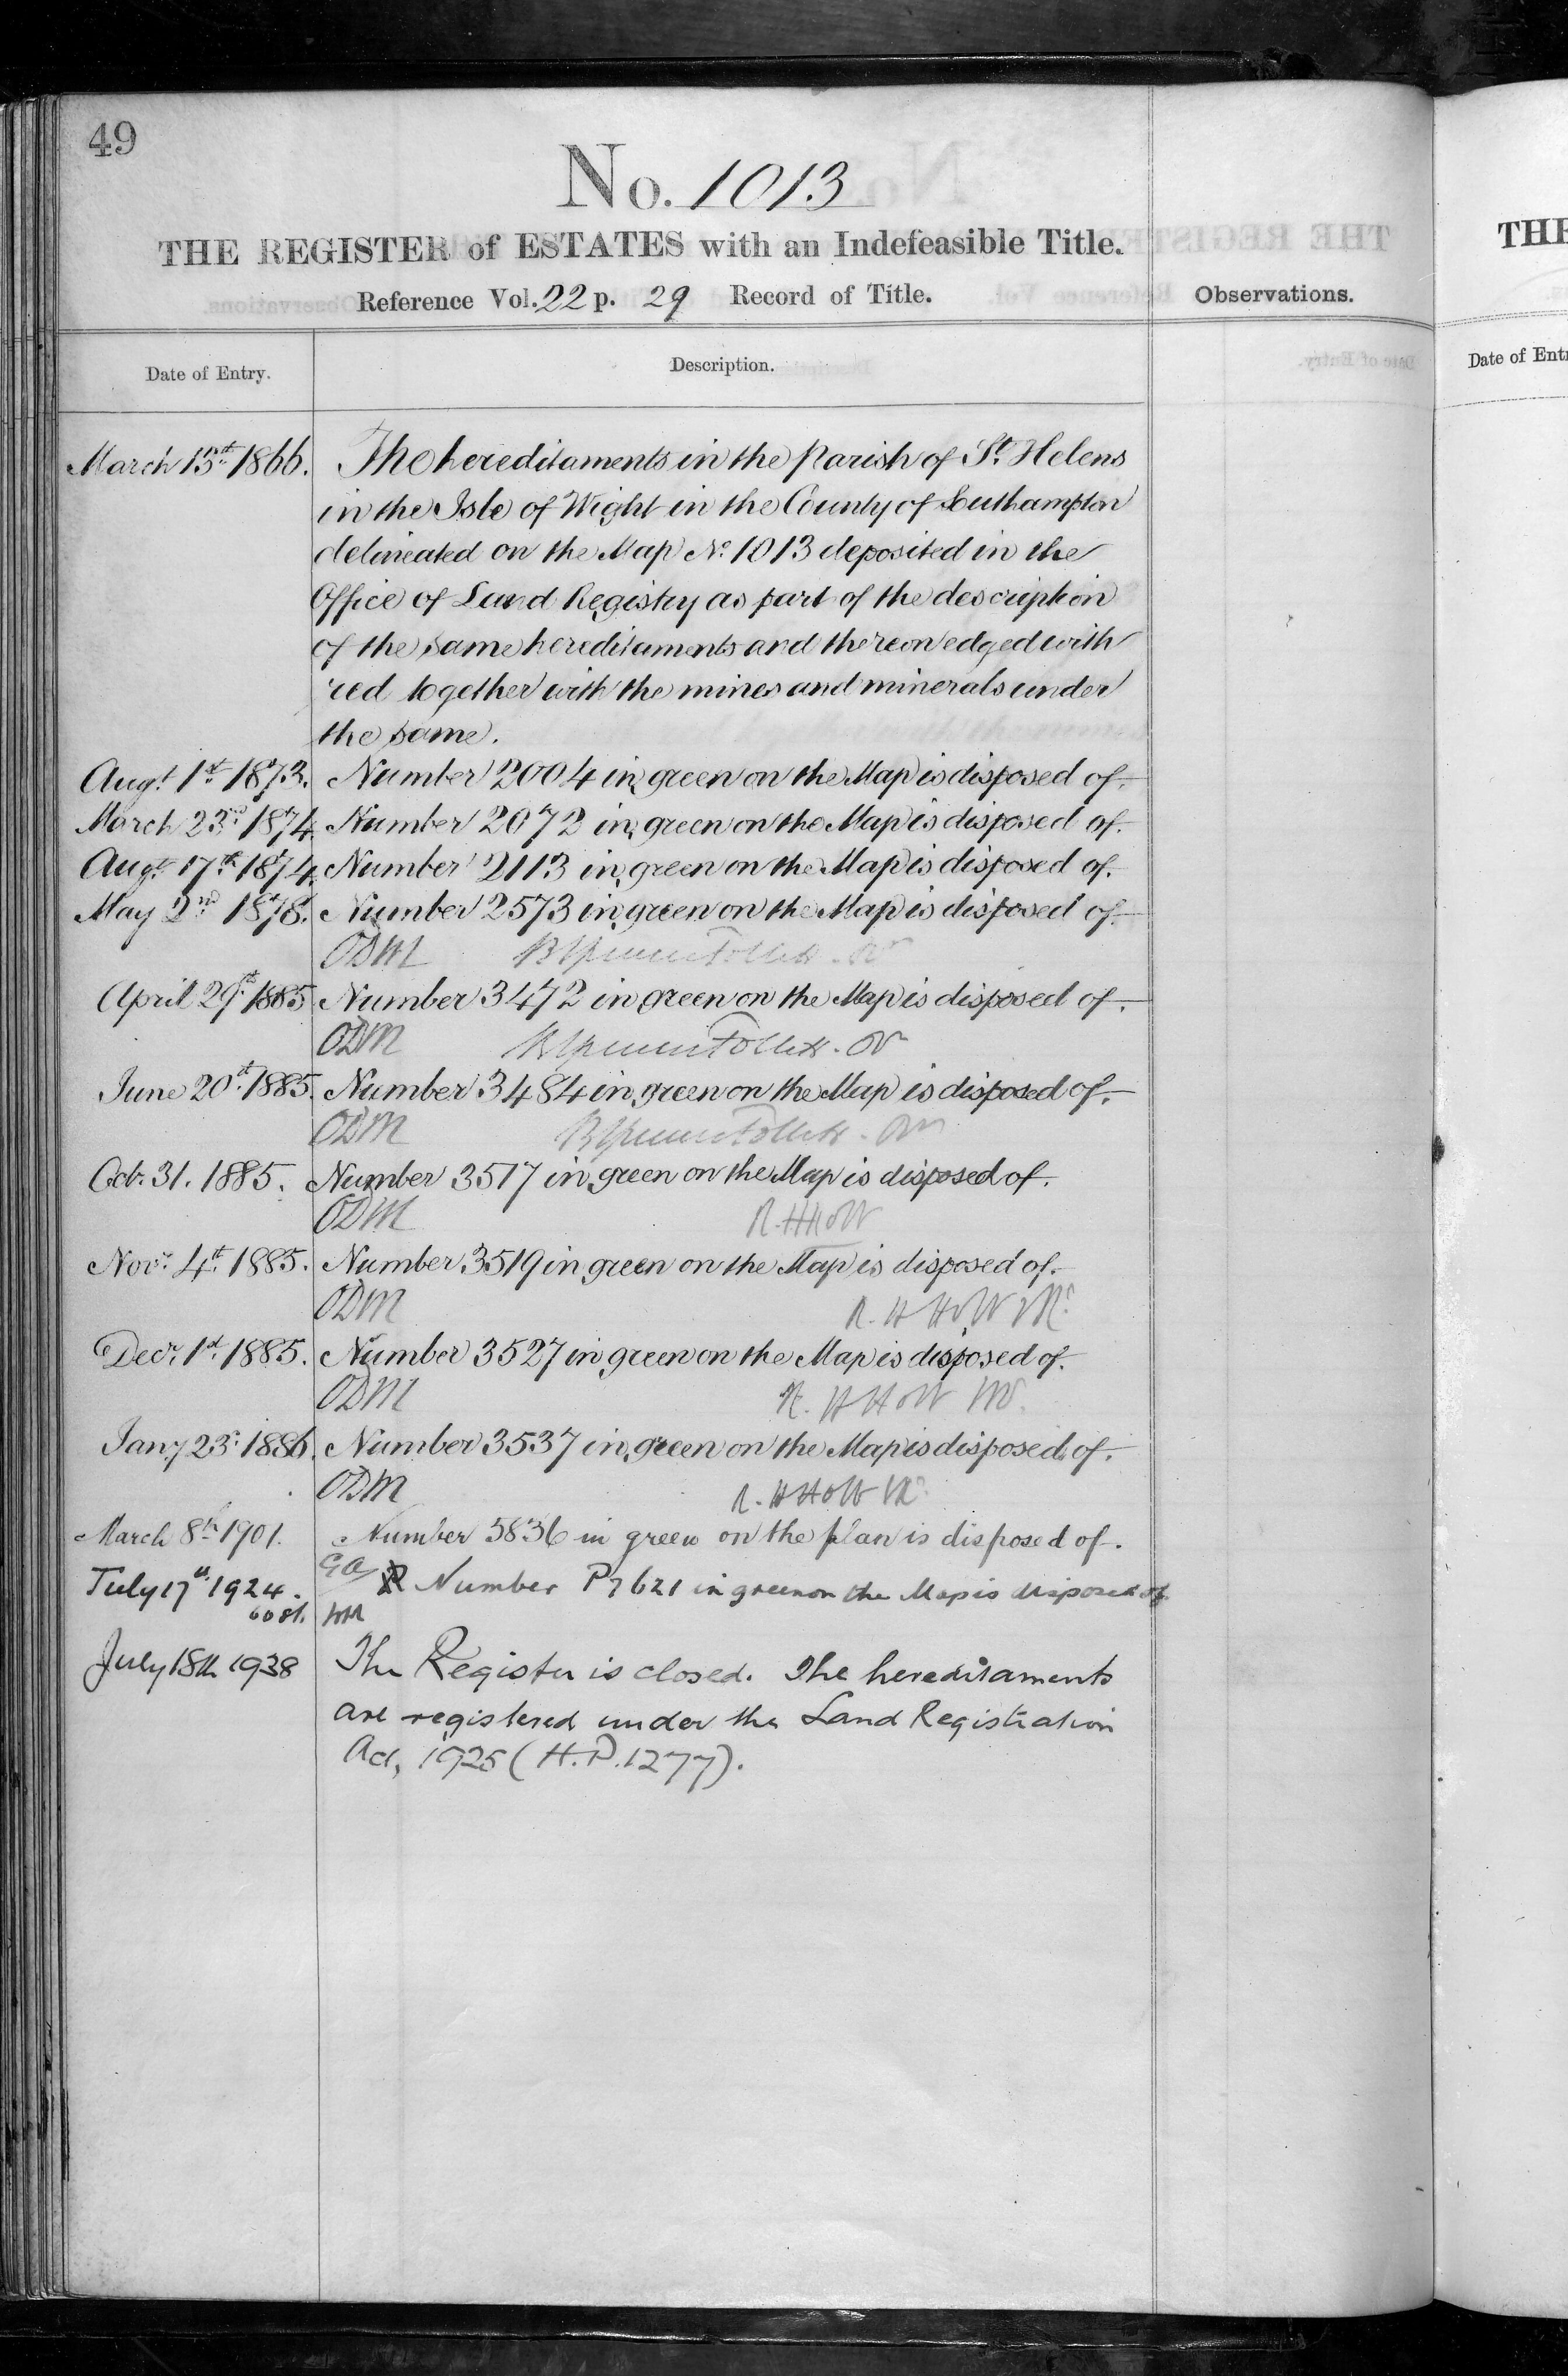 49
No. 1013
THE REGISTER of ESTATES with an Indefeasible Title.
Reference Vol. 22 p. 29 Record of Title.
Observations.
Date of Entry.
Description.
March 15th 1866. The hereditaments in the Parish of St. Helens
in the Isle of Wight in the County of Southampton
delineated on the Map No. 1013 deposited in the
Office of Land Registry as part of the description
of the same hereditaments and thereon edged with
red together with the mines and minerals under
the same.
Augt. 1st 1873. Number 2004 in green on the Map is disposed of.
March 23rd 1874. Number 2072 in green on the Map is disposed of.
Augt. 17th 1874. Number 2113 in green on the Map is disposed of.
May 2nd 1878. Number 2573 in green on the Map is disposed of.
ODM
April 29th 1885. Number 3472 in green on the Map is disposed of.
ODM
June 20th 1885. Number 3484 in green on the Map is disposed of.
ODM
Oct. 31. 1885. Number 3517 in green on the Map is disposed of.
ODM R. H Holt
Novr. 4th 1885. Number 3519 in green on the Map is disposed of.
ODM R. H Holt
Decr. 1st 1885. Number 3527 in green on the Map is disposed of.
ODM R. H Holt
Jany 23rd 1886. Number 3537 in green on the Map is disposed of.
ODM R. H Holt
March 8th 1901. Number 5836 in green on the plan is disposed of.
July 17th 1924. Number P7621 in green on the Map is disposed of
July 18th 1938 The Register is closed. The hereditaments
are registered under the Land Registration
Act, 1925 (H.P. 1277).
THE
Date of Ent